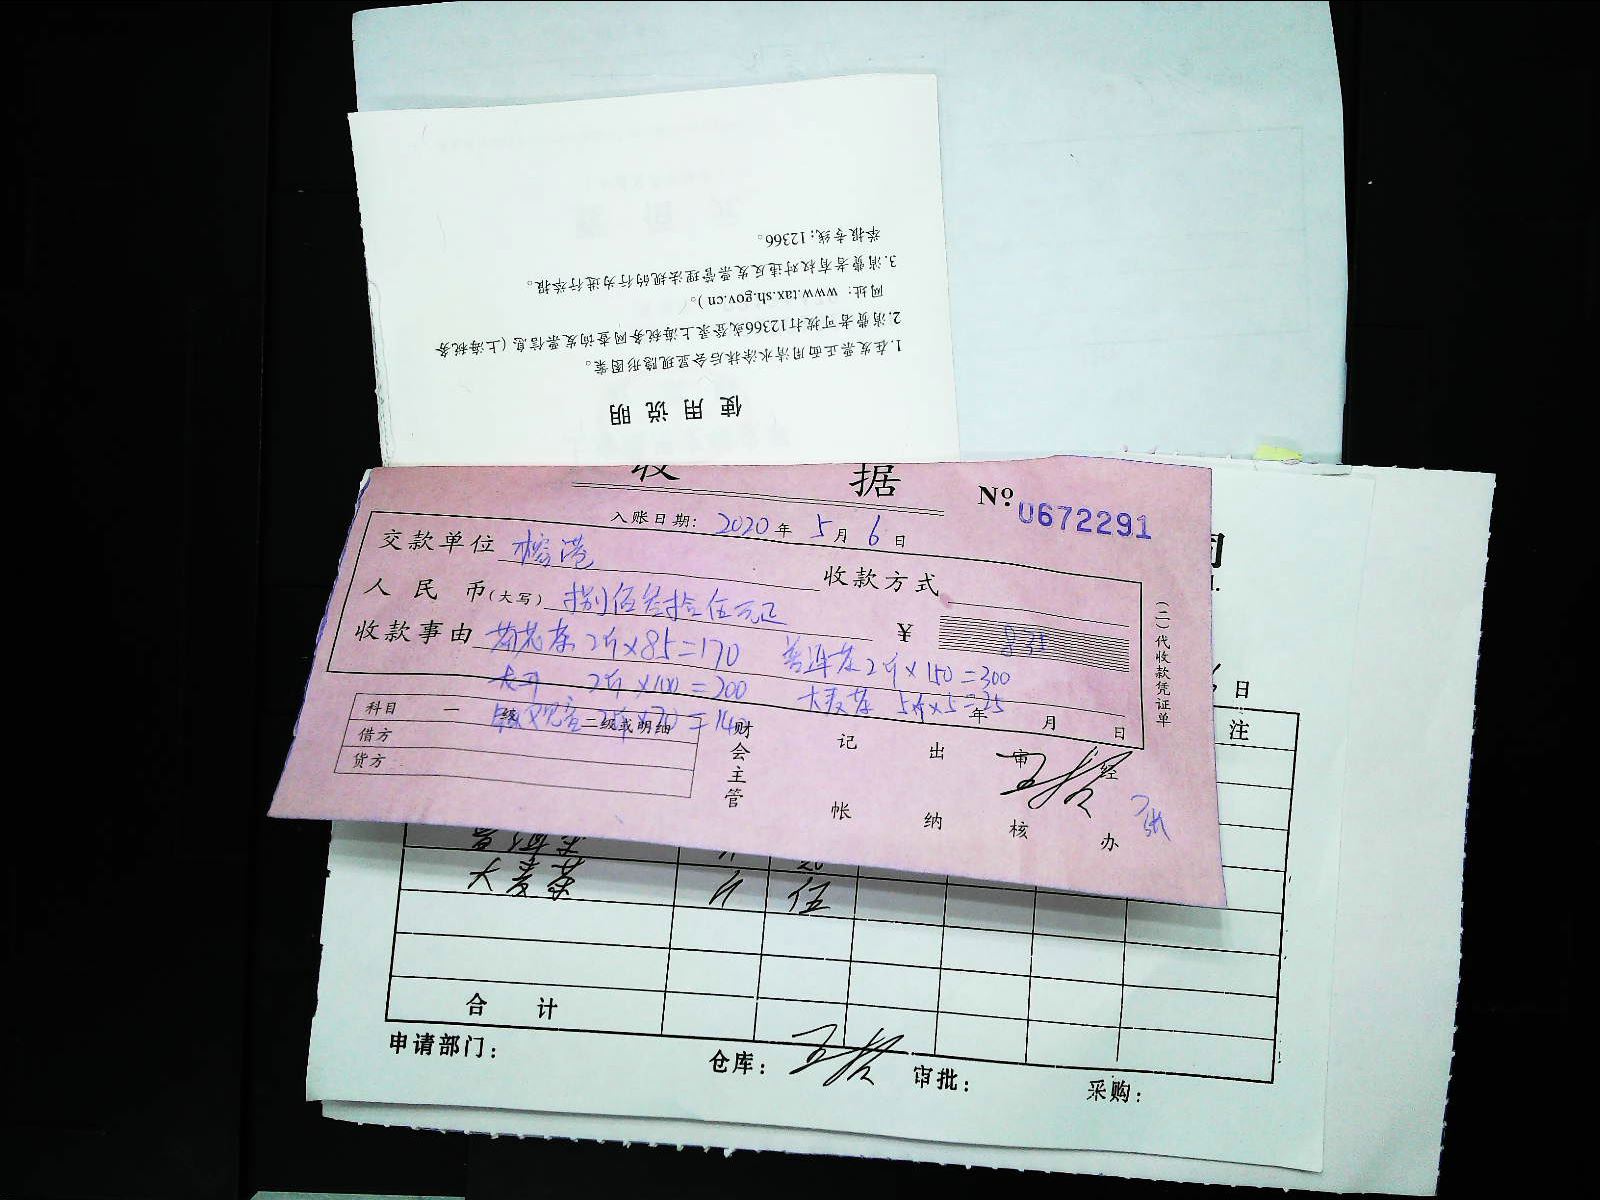 举报专线：12366。
3.消费者有权对违反发票管理法规的行为进行举报。
网址：www.tax.sh.gov.cn）。
2.消费者可拨打12366或登录上海税务网查询发票信息（上海税务
1.在发票正面用清水涂抹后会显现隐形图案。
使用说明
收 据
№ 0672291
入账日期：2020年5月6日
交款单位 榕港 收款方式
人民币(大写) 捌佰叁拾伍元正 ¥ 835
收款事由 菊花茶 2斤×85=170 普洱茶 2斤×150=300
2斤×100=200 大麦茶 5斤×5=25
铁观音 2斤×70=140
年 月 日
科目 一级 二级或明细
借方
货方
财会主管 记帐 出纳 审核 经办
(二)代收款凭证单
日
注
大麦茶 斤 伍
合 计
申请部门： 仓库： 审批： 采购：